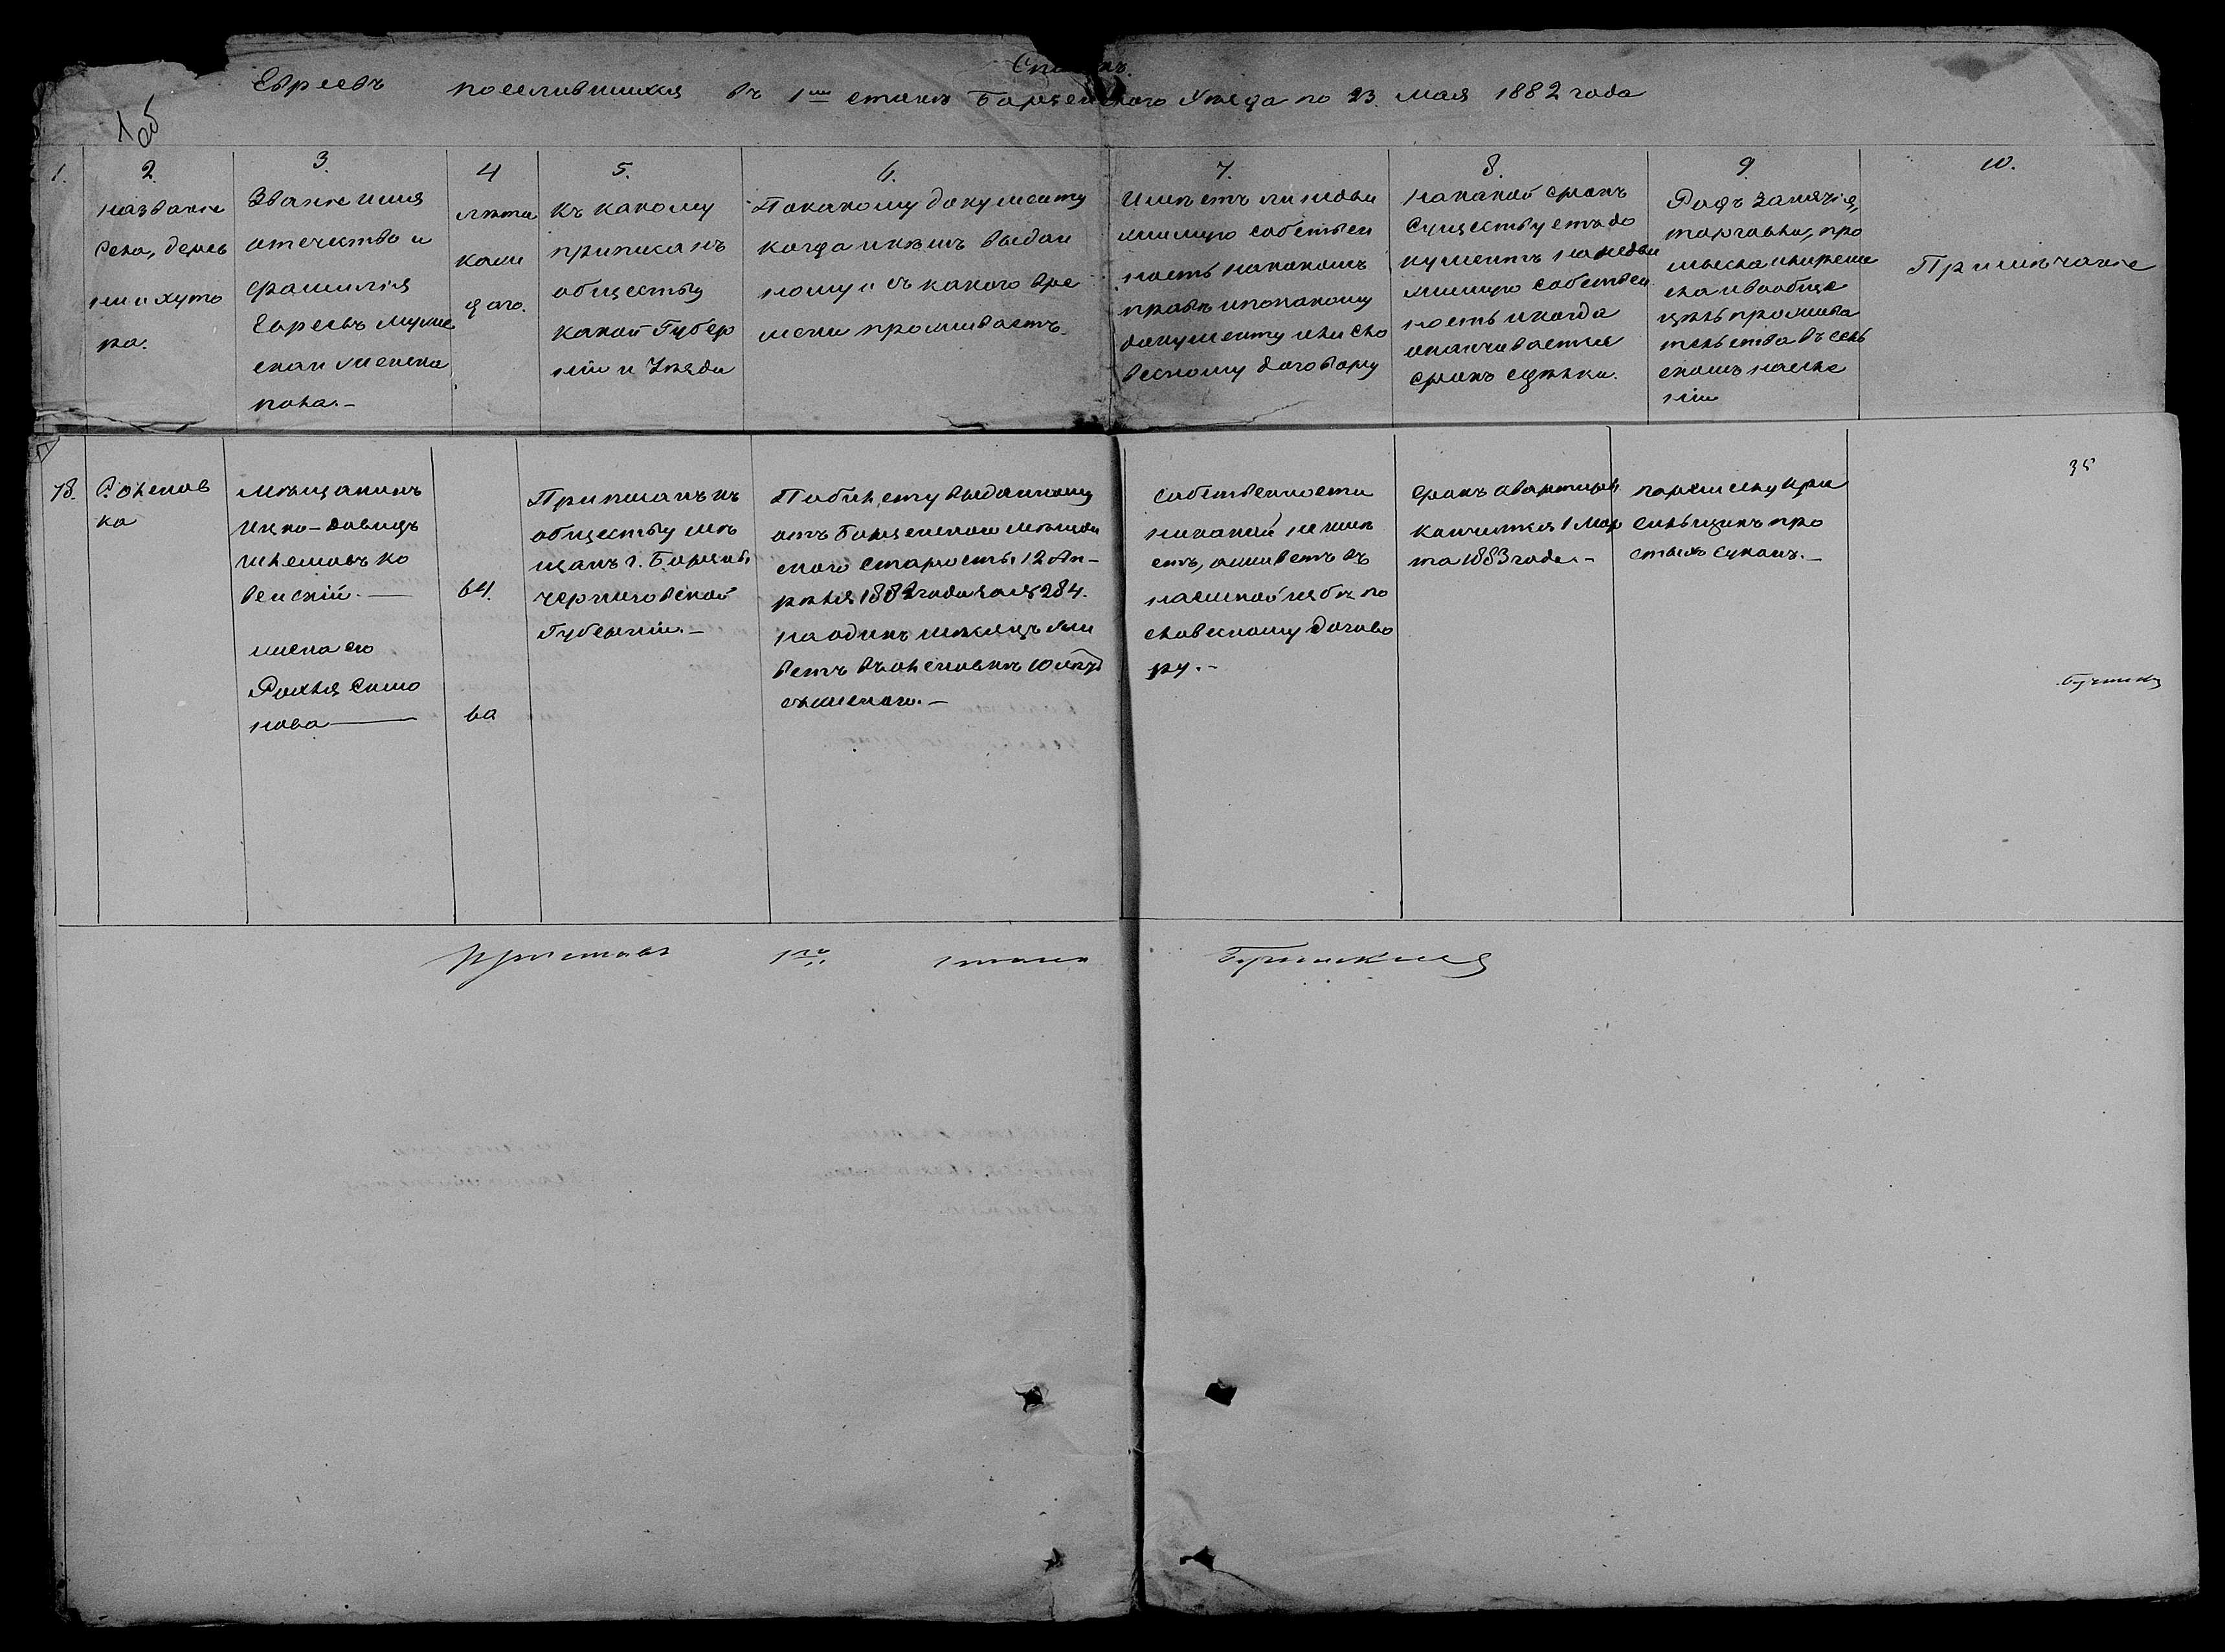 Списокъ
Евреевъ поселившихся въ 1мъ станѣ Борзенскаго Уѣзда по 23. мая 1882 года
1об
1.
2.
названіе
села, дерев
ни и хуто
ра.
3.
Званіе имя
отечество и
фамилія
Евреевъ муже
скаи женска
пола.–
4
лѣта
каж
даго.
5.
къ какому
приписанъ
обществу
какой Губер
ніи и Уѣзда
6.
Покакому документу
когда икѣмъ выдан
ному и съ какого вре
мени проживаетъ.
7.
Имѣетъ ли недви
жимую собствен
ность накакомъ
правѣ ипокакому
документу или сло
весному договору
8.
накакой срокъ
существуетъ до
кументъ на недви
жимую собствен
ность икогда
оканчивается
срокъ сдѣлки.
9.
Родъ занятія,
торговли, про
мысла
ивообще
цѣль прожива
тельства въ сель
скомъ населе
ніи
10.
Примѣчаніе
18.
ка
мѣщанинъ
Ицко-Давидъ
Шлемовъ Ко
венскій.–
64.
жена его
Рохля Симо
нова
60
Приписанъ къ
обществу мѣ
щанъ г. Борзны
черниговской
Губерніи.–
Побилету выданному
отъ Борзенскаго мѣщан
скаго старосты 12 Ап–
рѣля 1882 года за № 284.
на одинъ мѣсяцъ жи
ветъ 10 лѣтъ
съженою.–
Собственности
никакой не имѣ
етъ, аживетъ въ
наемной избѣ по
словесному догово
ру.–
срокъ квартиры
кончится 1 Мар
та 1883 года.–
стыхъ суконъ.–
35
Приставъ 1го стана